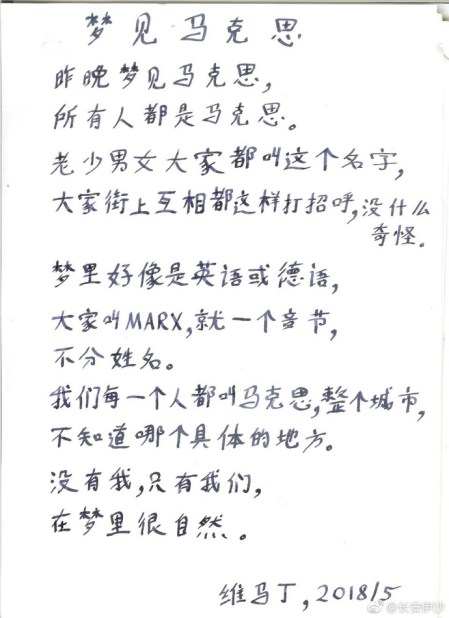 梦见马克思
昨晚梦见马克思，
所有人都是马克思。
老少男女大家都叫这个名字，
大家街上互相都这样打招呼，没什么
奇怪．
梦里好像是英语或德语，
大家叫MARX，就一个音节，
不分姓名。
我们每一个人都叫马克思，整个城市，
不知道哪个具体的地方。
没有我，只有我们，
在梦里很自然。
维马丁，2018/5
@长安伊沙